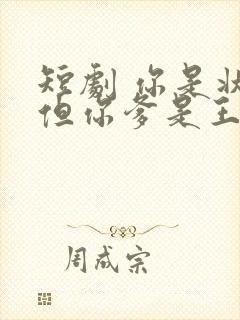 短劇 你是狀
但你爹是王
周成宗